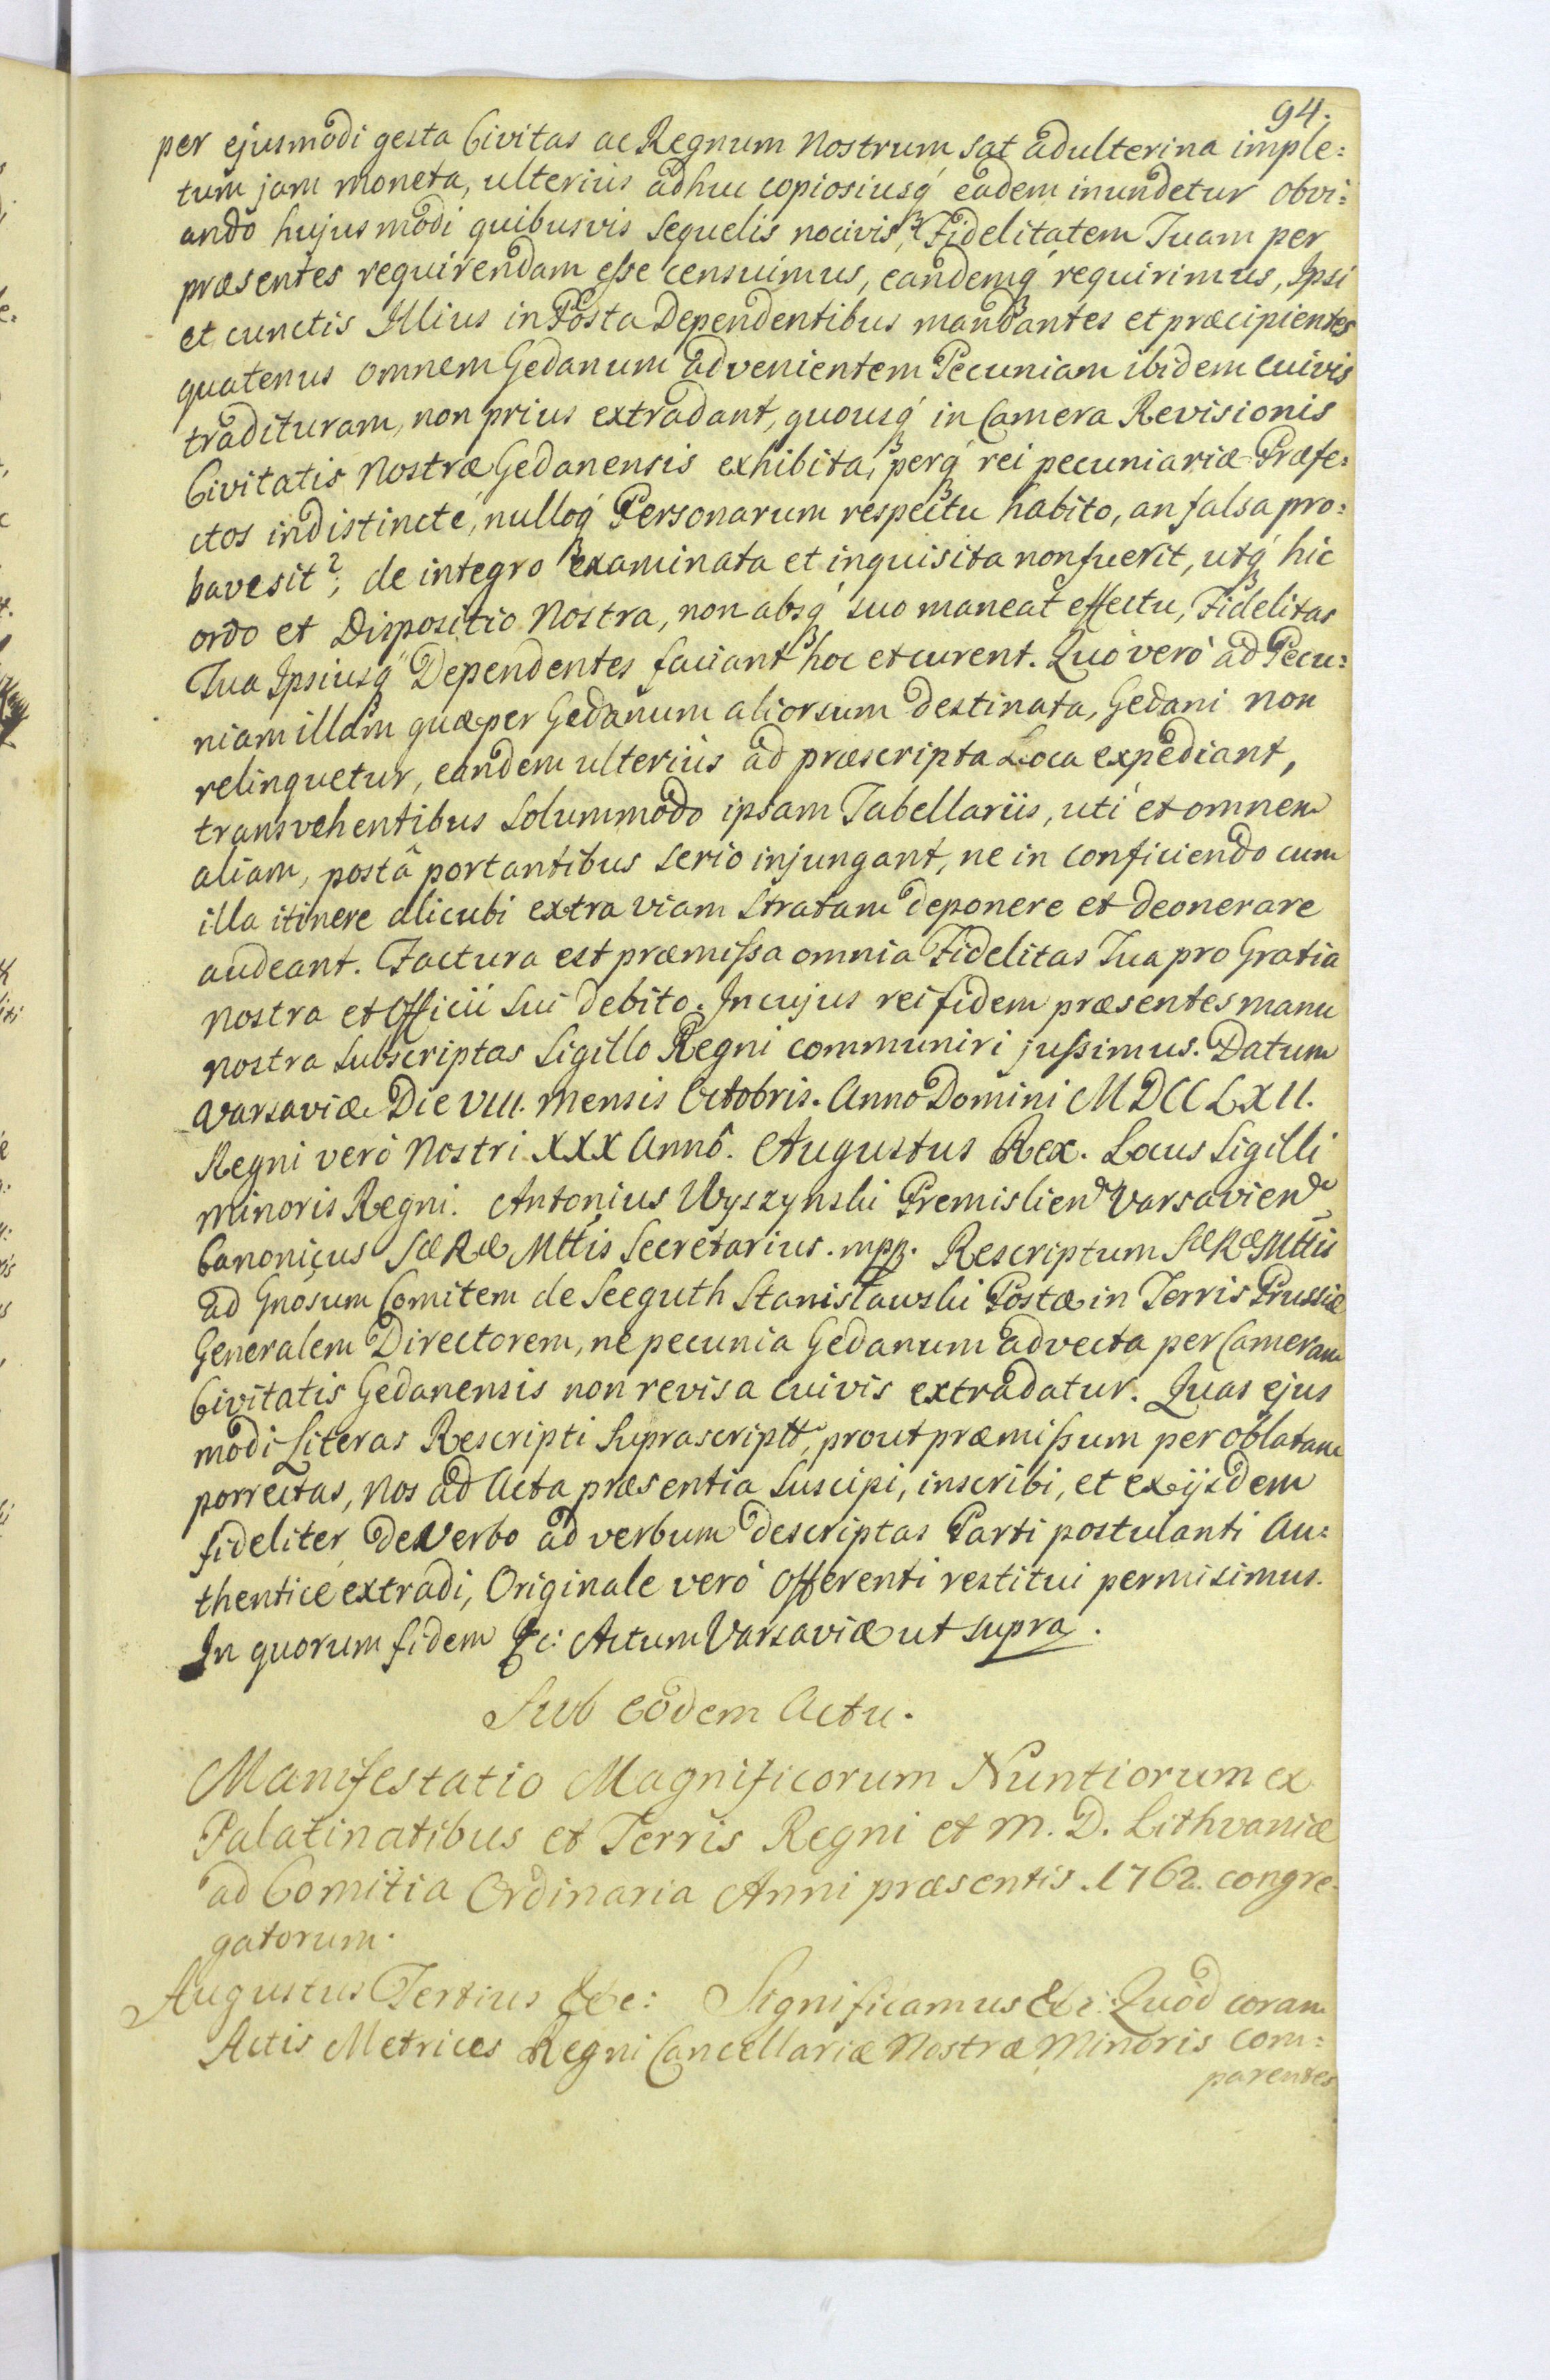 94.
per ejusmodi gesta Civitas ac Regnum Nostrum sat adulterina imple:
tum jam moneta, ulterius adhuc copiosiusq́ eadem inundetur obvi:
ando hujusmodi quibusvis sequelis nocivis, Fidelitatem Tuam per
præsentes requirendam esse censuimus, eandemq́ requirimus, Ipsi
et cunctis Illius in Posta Dependentibus mandantes et præcipientes
quatenus omnem Gedanum advenientem Pecuniam ibidem cuivis
tradituram, non prius extradant, quousq́ in Camera Revisionis
Civitatis Nostræ Gedanensis exhibita, perq́ rei pecuniariæ Præfe:
ctos indistincté, nulloq́ Personarum respectu habito, an falsa pro:
bavesit?, de integro examinata et inquisita non fuerit, utq́ hic
ordo et Dispositio Nostra, non absq́ suo maneat effectu, Fidelitas
Tua Ipsiusq́ Dependentes faciant hoc et curent. Quó veró ad Pecu:
niam illam quæ per Gedanum aliorsum destinata, Gedani non
relinquetur, eandem ulteriús ad præscripta Loca expediant,
transvehentibus solummodo ipsam Tabellariis, uti et omnem
aliam, postâ portantibus serió injungant, ne in conficiendo cum
illa itinere alicubi extra viam stratam deponere et deonerare
audeant. Factura est præmissa omnia Fidelitas Tua pro Gratia
nostra et Officii sui debito. In cujus rei fidem præsentes manu
nostra subscriptas Sigillo Regni communiri jussimus. Datum
Varsaviæ Die VIII. Mensis Octobris. Anno Domini MDCCLXII.
Regni veró Nostri XXX Annô. Augustus Rex. Locus Sigilli
minoris Regni. Antonius Wyszynski Premislien Varsavien
Canonicus Sæ Ræ Mttis Secretarius. mpp. Rescriptum Sæ Ræ Mttis
ad Gnosum Comitem de Seeguth Stanisławski Postæ in Terris Prussiæ
Generalem Directorem, ne pecunia Gedanum advecta per Cameram
Civitatis Gedanensis non revisa cuivis extradatur. Quas ejus
modi Literas Rescripti suprascriptt, prout præmissum per oblatam
porrectas, nos ad Acta præsentia suscipi, inscribi, et ex ijsdem
fideliter de Verbo ad verbum descriptas Parti postulanti Au:
thenticé extradi, Originale veró Offerenti restitui permisimus.
In quorum fidem &c: Actum Varsaviæ ut supra.
Sub eodem Actu.
Manifestatio Magnificorum Nuntiorum ex
Palatinatibus et Terris Regni et M. D. Lithvaniæ
ad Comitia Ordinaria Anni præsentis 1762. congre:
gatorum.
Augustus Tertius &c: Significamus &c: Quod coram
Actis Metrices Regni Cancellariæ Nostræ Minoris com:
parentes